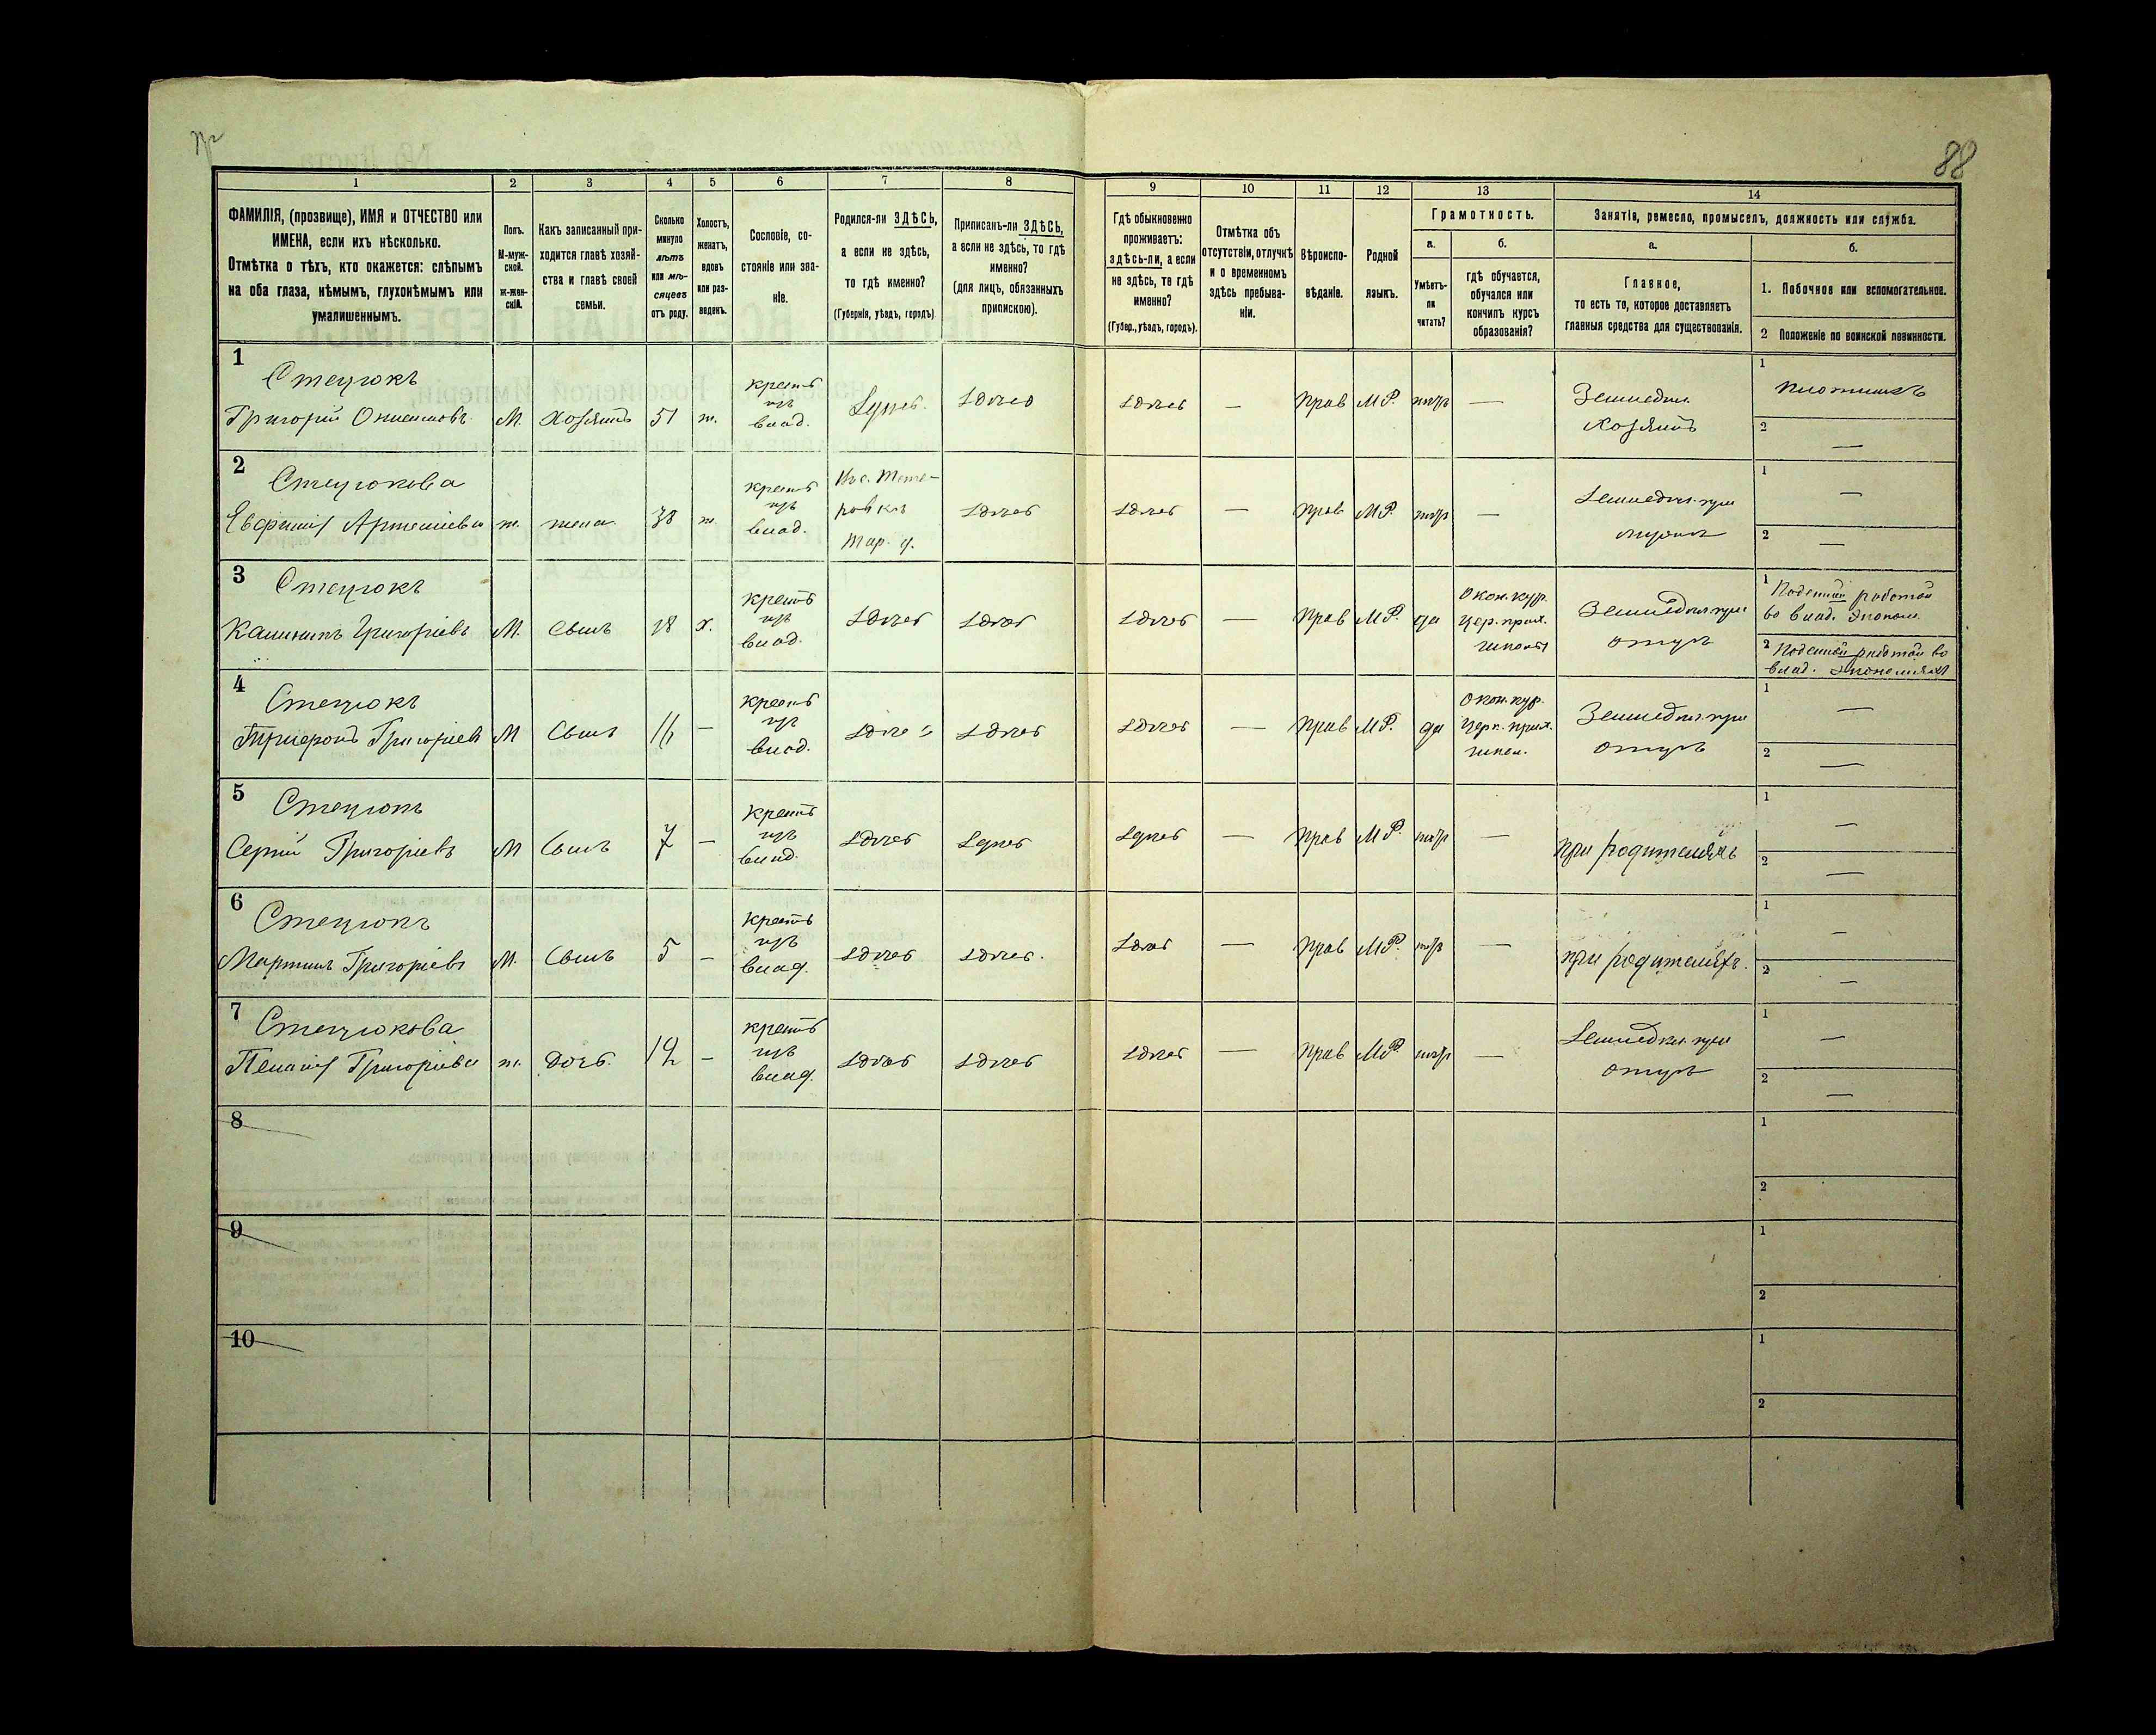 88
1 2 3 4 5 6 7 8 9 10 11 12 13 14
ФАМИЛІЯ, (прозвище), ИМЯ и ОТЧЕСТВО или
ИМЕНА, если ихъ нѣсколько.
Отмѣтка о тѣхъ, кто окажется: слѣпымъ
на оба глаза, нѣмымъ, глухонѣмымъ или
умалишеннымъ.
Полъ.
М-муж-
ской.
Ж-жен-
скій.
Какъ записанный при-
ходится главѣ хозяй-
ства и главѣ своей
семьи.
Сколько
минуло
лѣтъ
или мѣ-
сяцевъ
отъ роду.
Холостъ,
женатъ,
вдовъ
или раз-
веденъ.
Сословіе, со-
стояніе или зва-
ніе.
Родился-ли ЗДѢСЬ,
а если не здѣсь,
то гдѣ именно?
(Губернія, уѣздъ, городъ).
Приписанъ-ли ЗДѢСЬ,
а если не здѣсь, то гдѣ
именно?
(для лицъ, обязанныхъ
припискою).
Гдѣ обыкновенно
проживаетъ:
здѣсь-ли, а если
не здѣсь, то гдѣ
именно?
(Губер., уѣздъ, городъ).
Отмѣтка объ
отсутствіи, отлучкѣ
и о временномъ
здѣсь пребыва-
ніи.
Вѣроиспо-
вѣданіе.
Родной
языкъ.
Грамотность.
а.
Умѣетъ-
ли
читать?
б.
гдѣ обучается,
обучался или
кончилъ курсъ
образованія?
Занятіе, ремесло, промыселъ, должность или служба.
а.
Главное,
то есть то, которое доставляетъ
главныя средства для существованія.
б.
1. Побочное или вспомогательное.
2 Положеніе по воинской повинности.
1 Стецюкъ
Григорій Онисимовъ М. Хозяинъ 51 ж. крестъ изъ влад. Здѣсь здѣсь здѣсь — Прав М.Р. нѣтъ — Земледѣл. хозяинъ 1 Плотникъ 2 —
2 Стецюкова
Евфимія Артеміева ж. жена 38 ж. крестъ изъ влад. здѣсь здѣсь — Прав М.Р. нѣтъ — Земледѣл. при мужѣ 1 — 2 —
3 Стецюкъ
Калиникъ Григоріевъ М. Сынъ 18 х. крестъ изъ влад. здѣсь здѣсь здѣсь — Прав М.Р. да Окон. кур. цер. прих. школы Земледѣл. при отцѣ 1 Поденной работой во влад. эконом. 2 Поденной работой во влад. экономіяхъ
4 Стецюкъ
Григоріевъ М Сынъ 16 — крестъ изъ влад. здѣсь здѣсь здѣсь — Прав М.Р. да Окон. кур. церк. прих. школ. Земледѣл. при отцѣ 1 — 2 —
5 Стецюкъ
Сергій Григоріевъ М Сынъ 7 — крестъ изъ влад. здѣсь здѣсь здѣсь — Прав М.Р. нѣтъ — при родителяхъ 1 — 2 —
6 Стецюкъ
Мартинъ Григоріевъ М. Сынъ 5 — крестъ изъ влад. здѣсь здѣсь. здѣсь — Прав М.Р. нѣтъ — при родителяхъ. 1 — 2 —
7 Стецюкова
Пелагія Григоріева ж. Дочь. 12 — крестъ изъ влад. здѣсь здѣсь здѣсь — Прав М.Р. нѣтъ — Земледѣл. при отцѣ 1 — 2 —
8 1 2
9 1 2
10 1 2